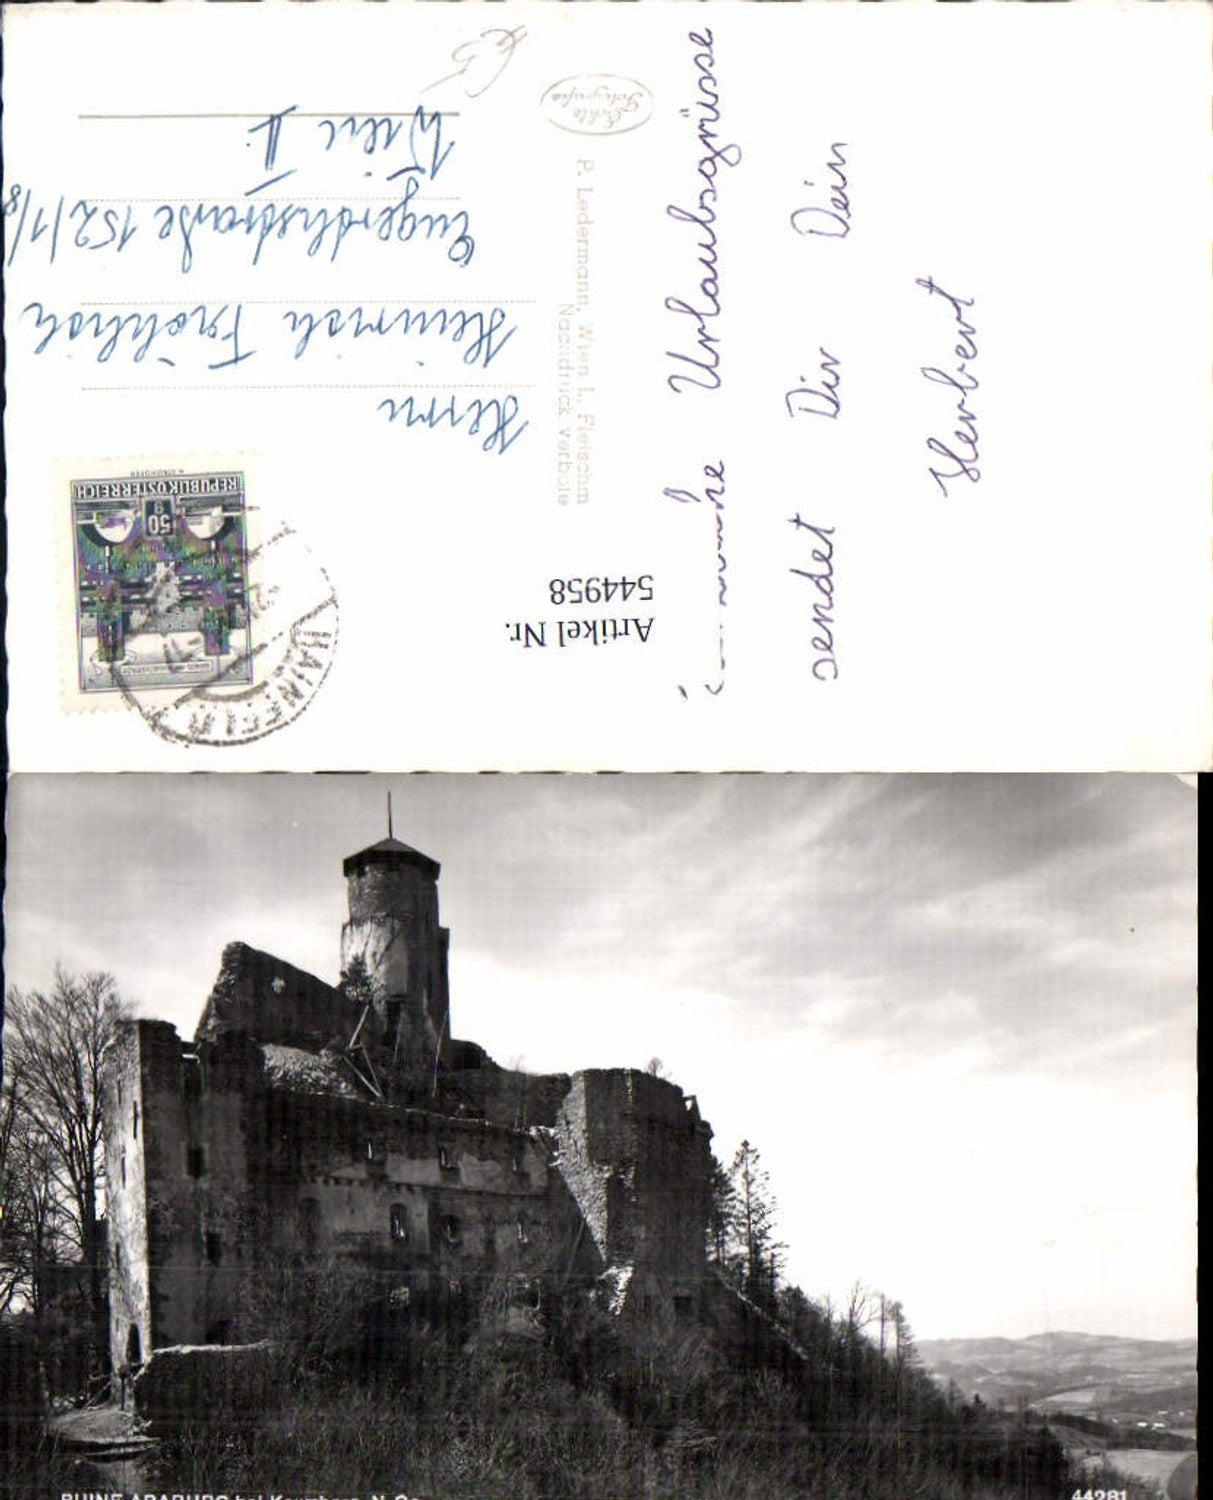 Urlaubsgrüsse
sendet Dir Dein
Herbert
Artikel Nr.
544958
P. Ledermann, Wien I., Fleischm
Nachdruck verbote
Echte
Fotografie
Herrn
Heinrich Fröhlich
152/1/8
Wien II.
€5
REPUBLIK ÖSTERREICH
50
g
HAINFELD
RUINE ARABURG bei Kaumberg, N.Oe.
44281